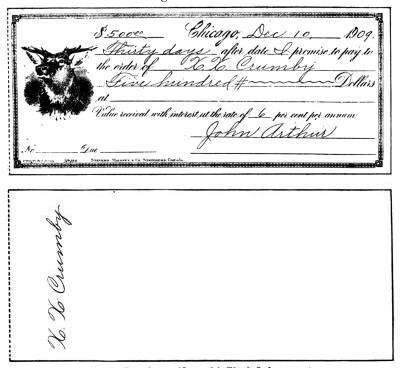 $500.00 Chicago, Dec 10, 1909.
Thirty days after date I promise to pay to
the order of X. X. Crumby
Five hundred Dollars
at
Value received with interest, at the rate of 6 per cent per annum
John Arthur
No. Due
X. X. Crumby